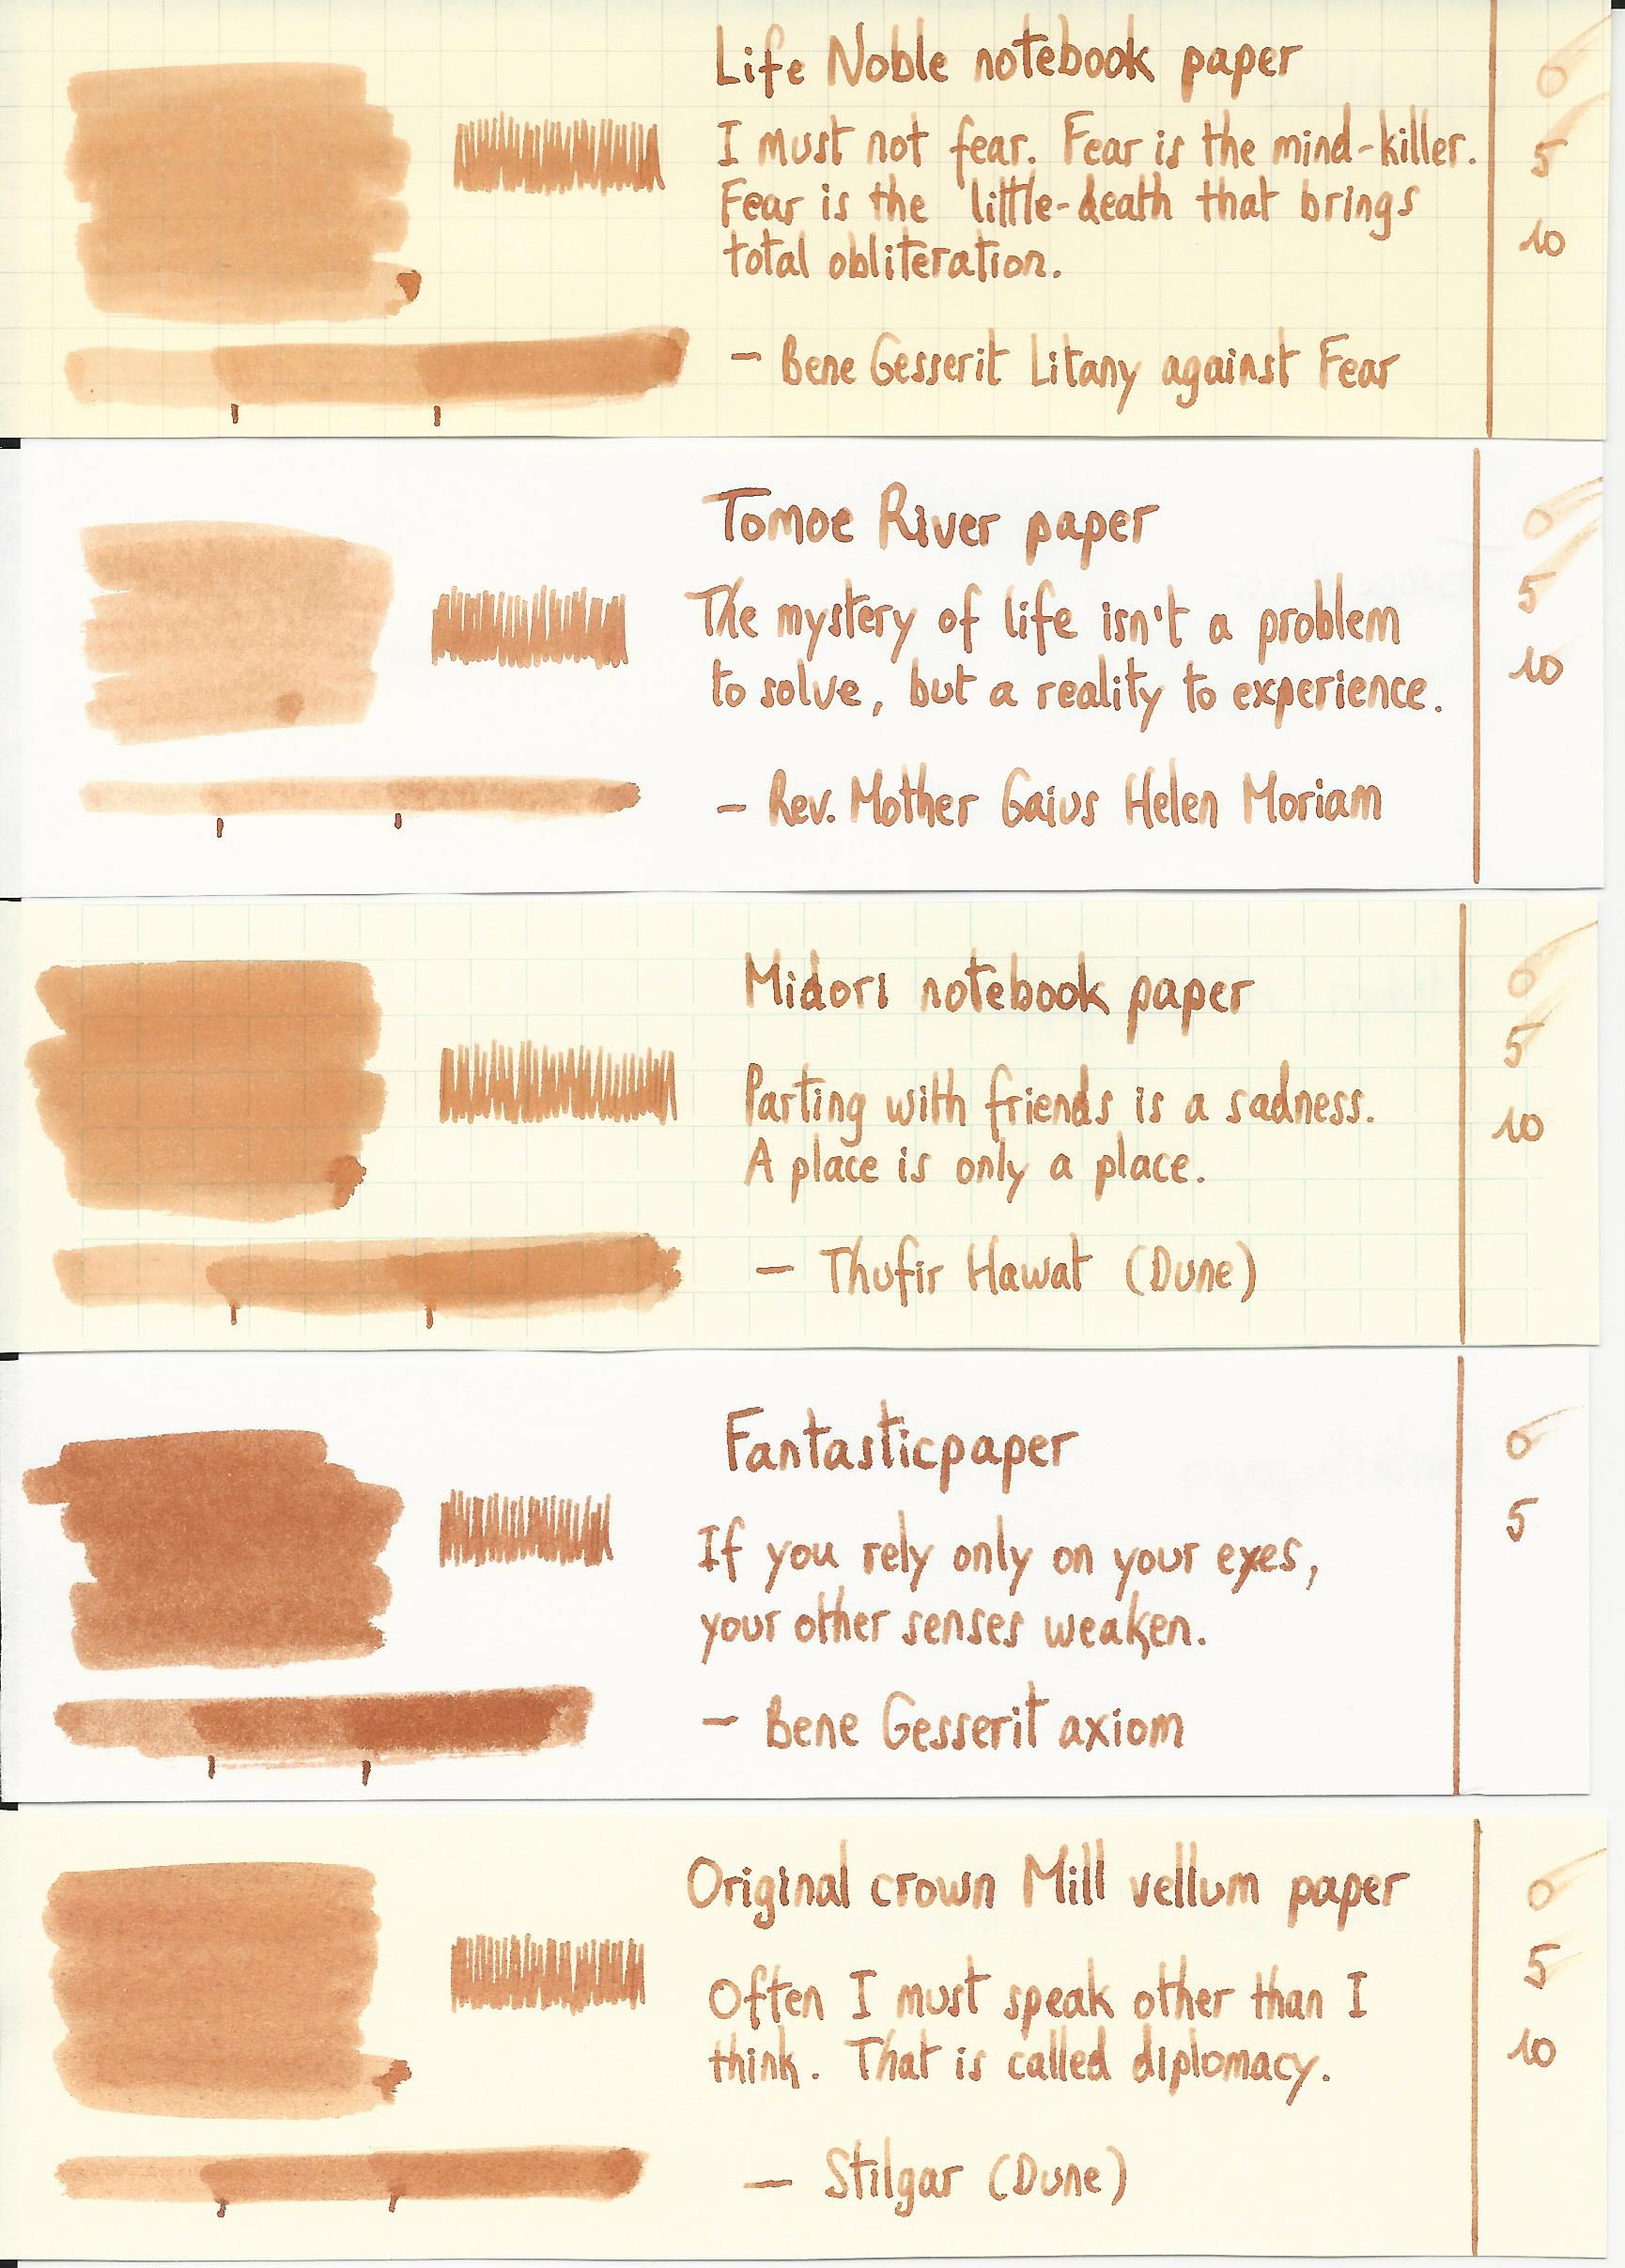 Life Noble notebook paper
0
I must not fear. Fear is the mind-killer.
5
Fear is the little-death that brings
10
total obliteration.
— Bene Gesserit Litany against Fear
Tomoe River paper
0
The mystery of life isn't a problem
5
to solve, but a reality to experience.
10
— Rev. Mother Gaius Helen Moriam
Midori notebook paper
0
5
Parting with friends is a sadness.
10
A place is only a place.
— Thufir Hawat (Dune)
Fantasticpaper
0
If you rely only on your eyes,
5
your other senses weaken.
— Bene Gesserit axiom
Original crown Mill vellum paper
0
5
Often I must speak other than I
10
think. That is called diplomacy.
— Stilgar (Dune)